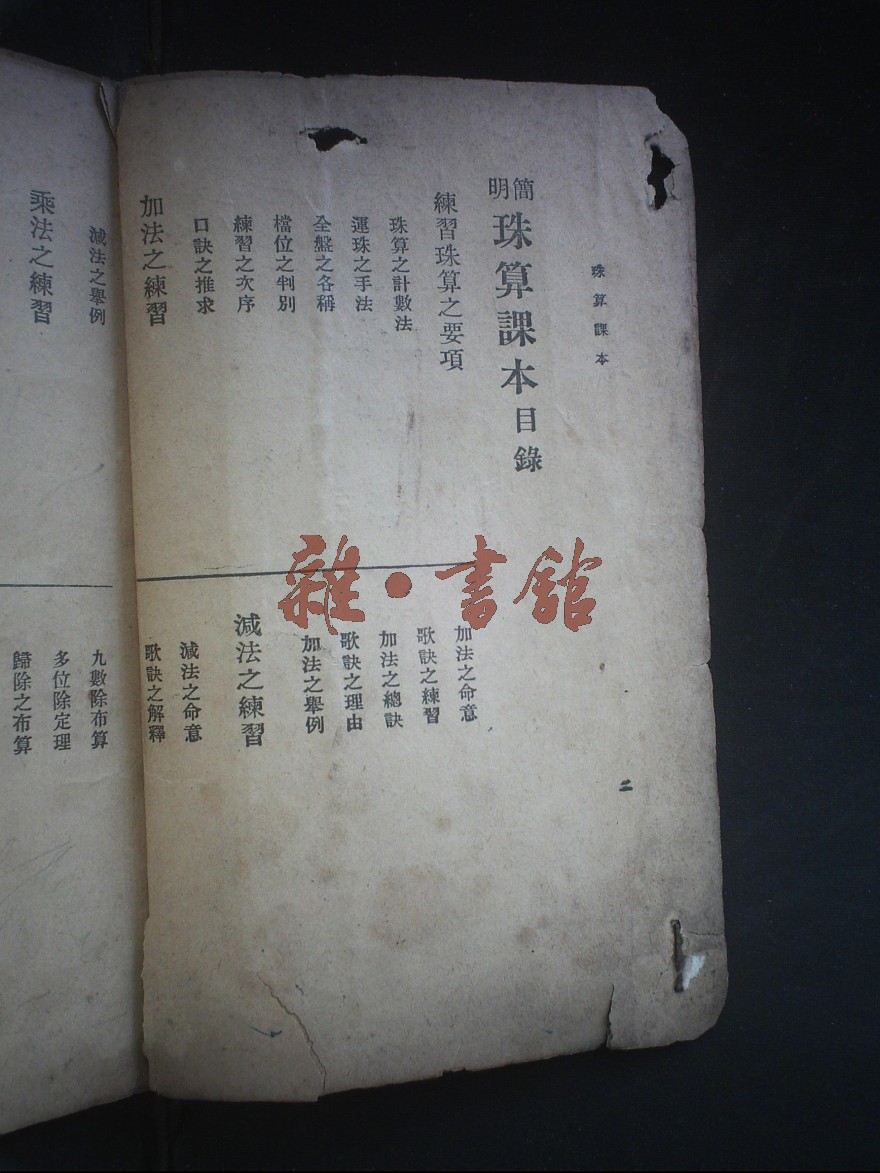 珠算課本
簡明珠算課本目錄
練習珠算之要項
珠算之計數法
運珠之手法
全盤之各稱
檔位之判別
練習之次序
口訣之推求
加法之練習
加法之命意
歌訣之練習
加法之總訣
歌訣之理由
加法之舉例
減法之練習
減法之命意
歌訣之解釋
二
減法之舉例
乘法之練習
九數除布算
多位除定理
歸除之布算
雜·書舘